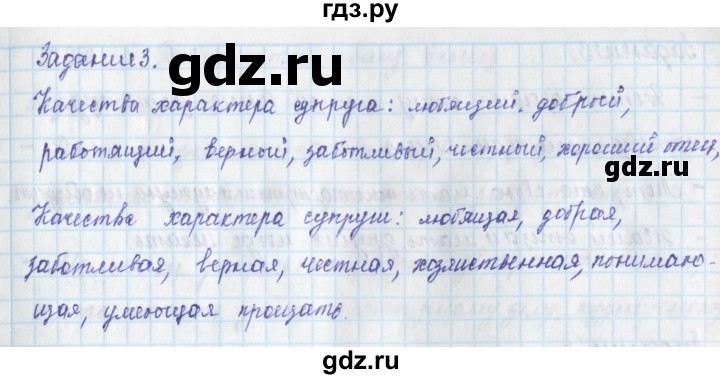 гдз.ру
gdz.ru
Задание 3.
gdz.ru
Качества характера супруга: любящий, добрый,
работящий, верный, заботливый, честный, хороший отец,
Качества характера супруги: любящая, добрая,
заботливая, верная, честная, хозяйственная, понимаю-
щая, умеющая прощать.
gdz.ru